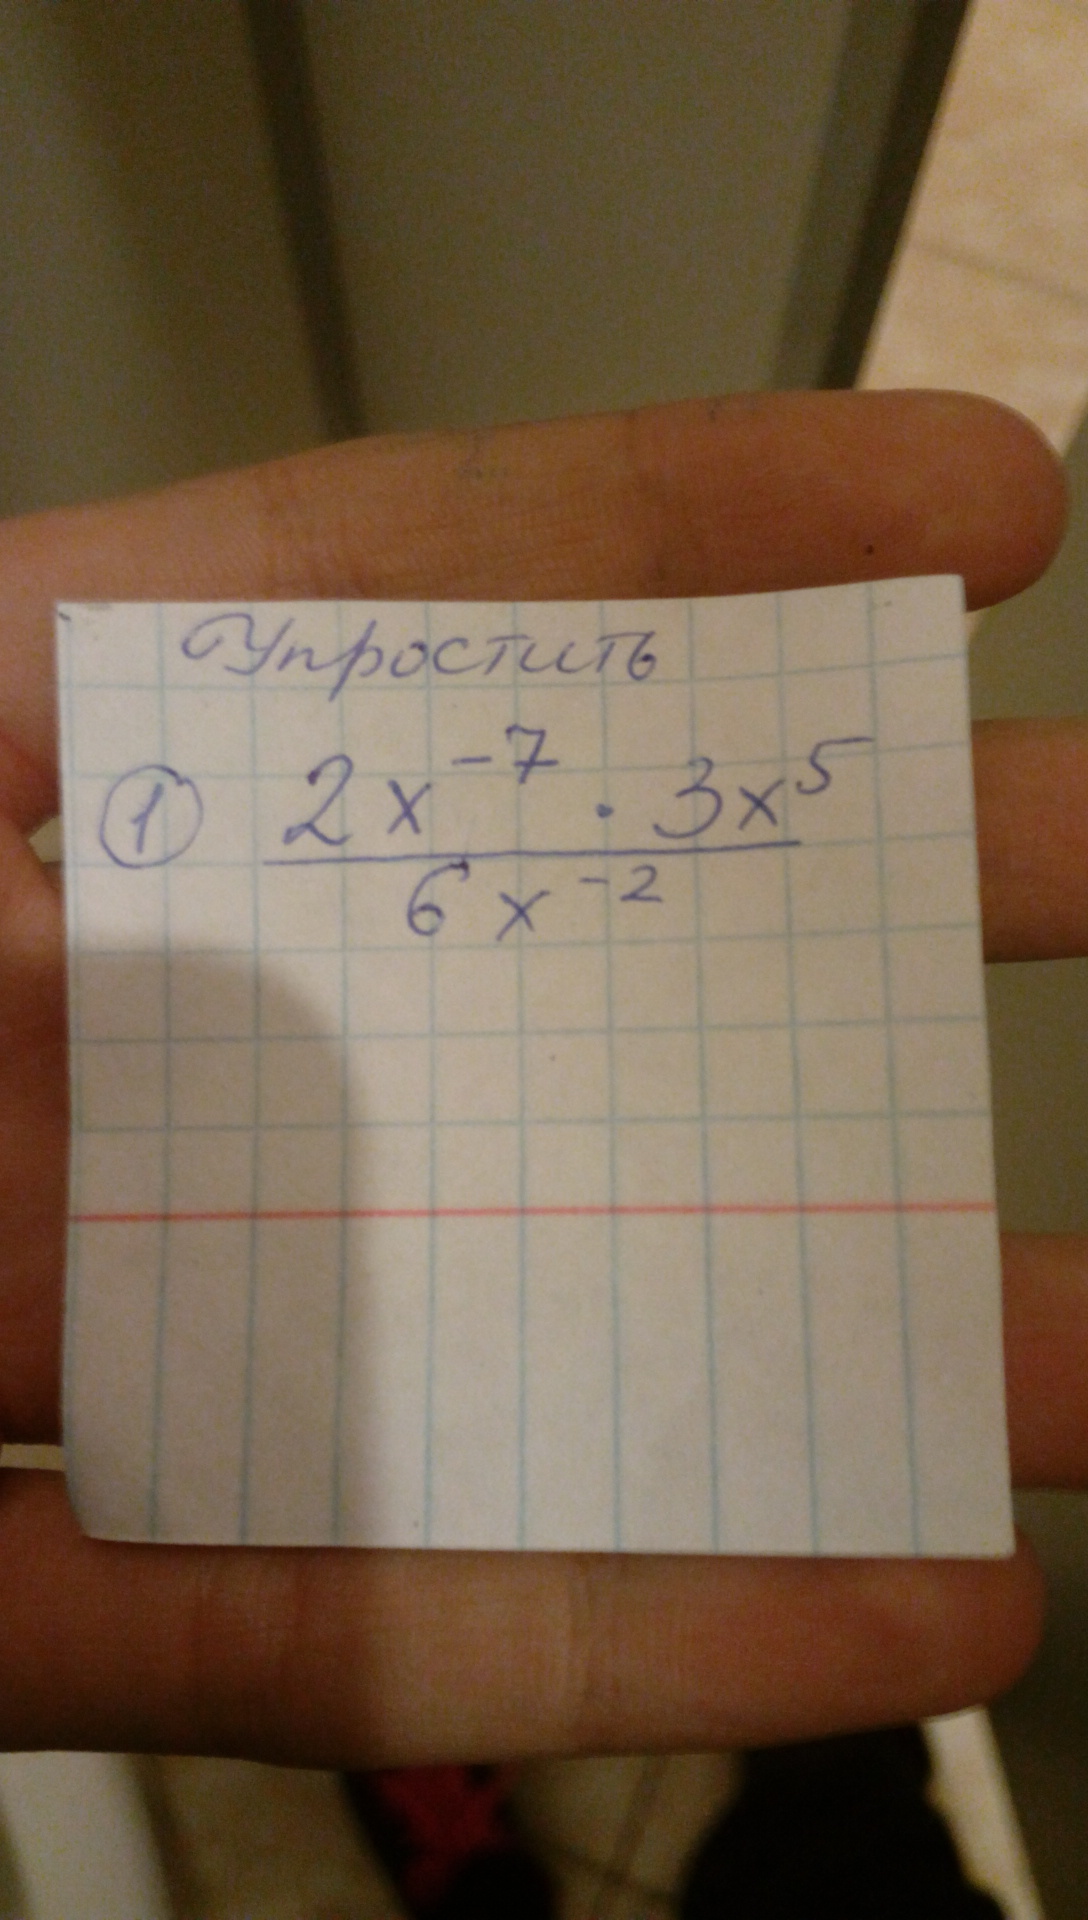 Упростить
① 2x⁻⁷ · 3x⁵
6x⁻²